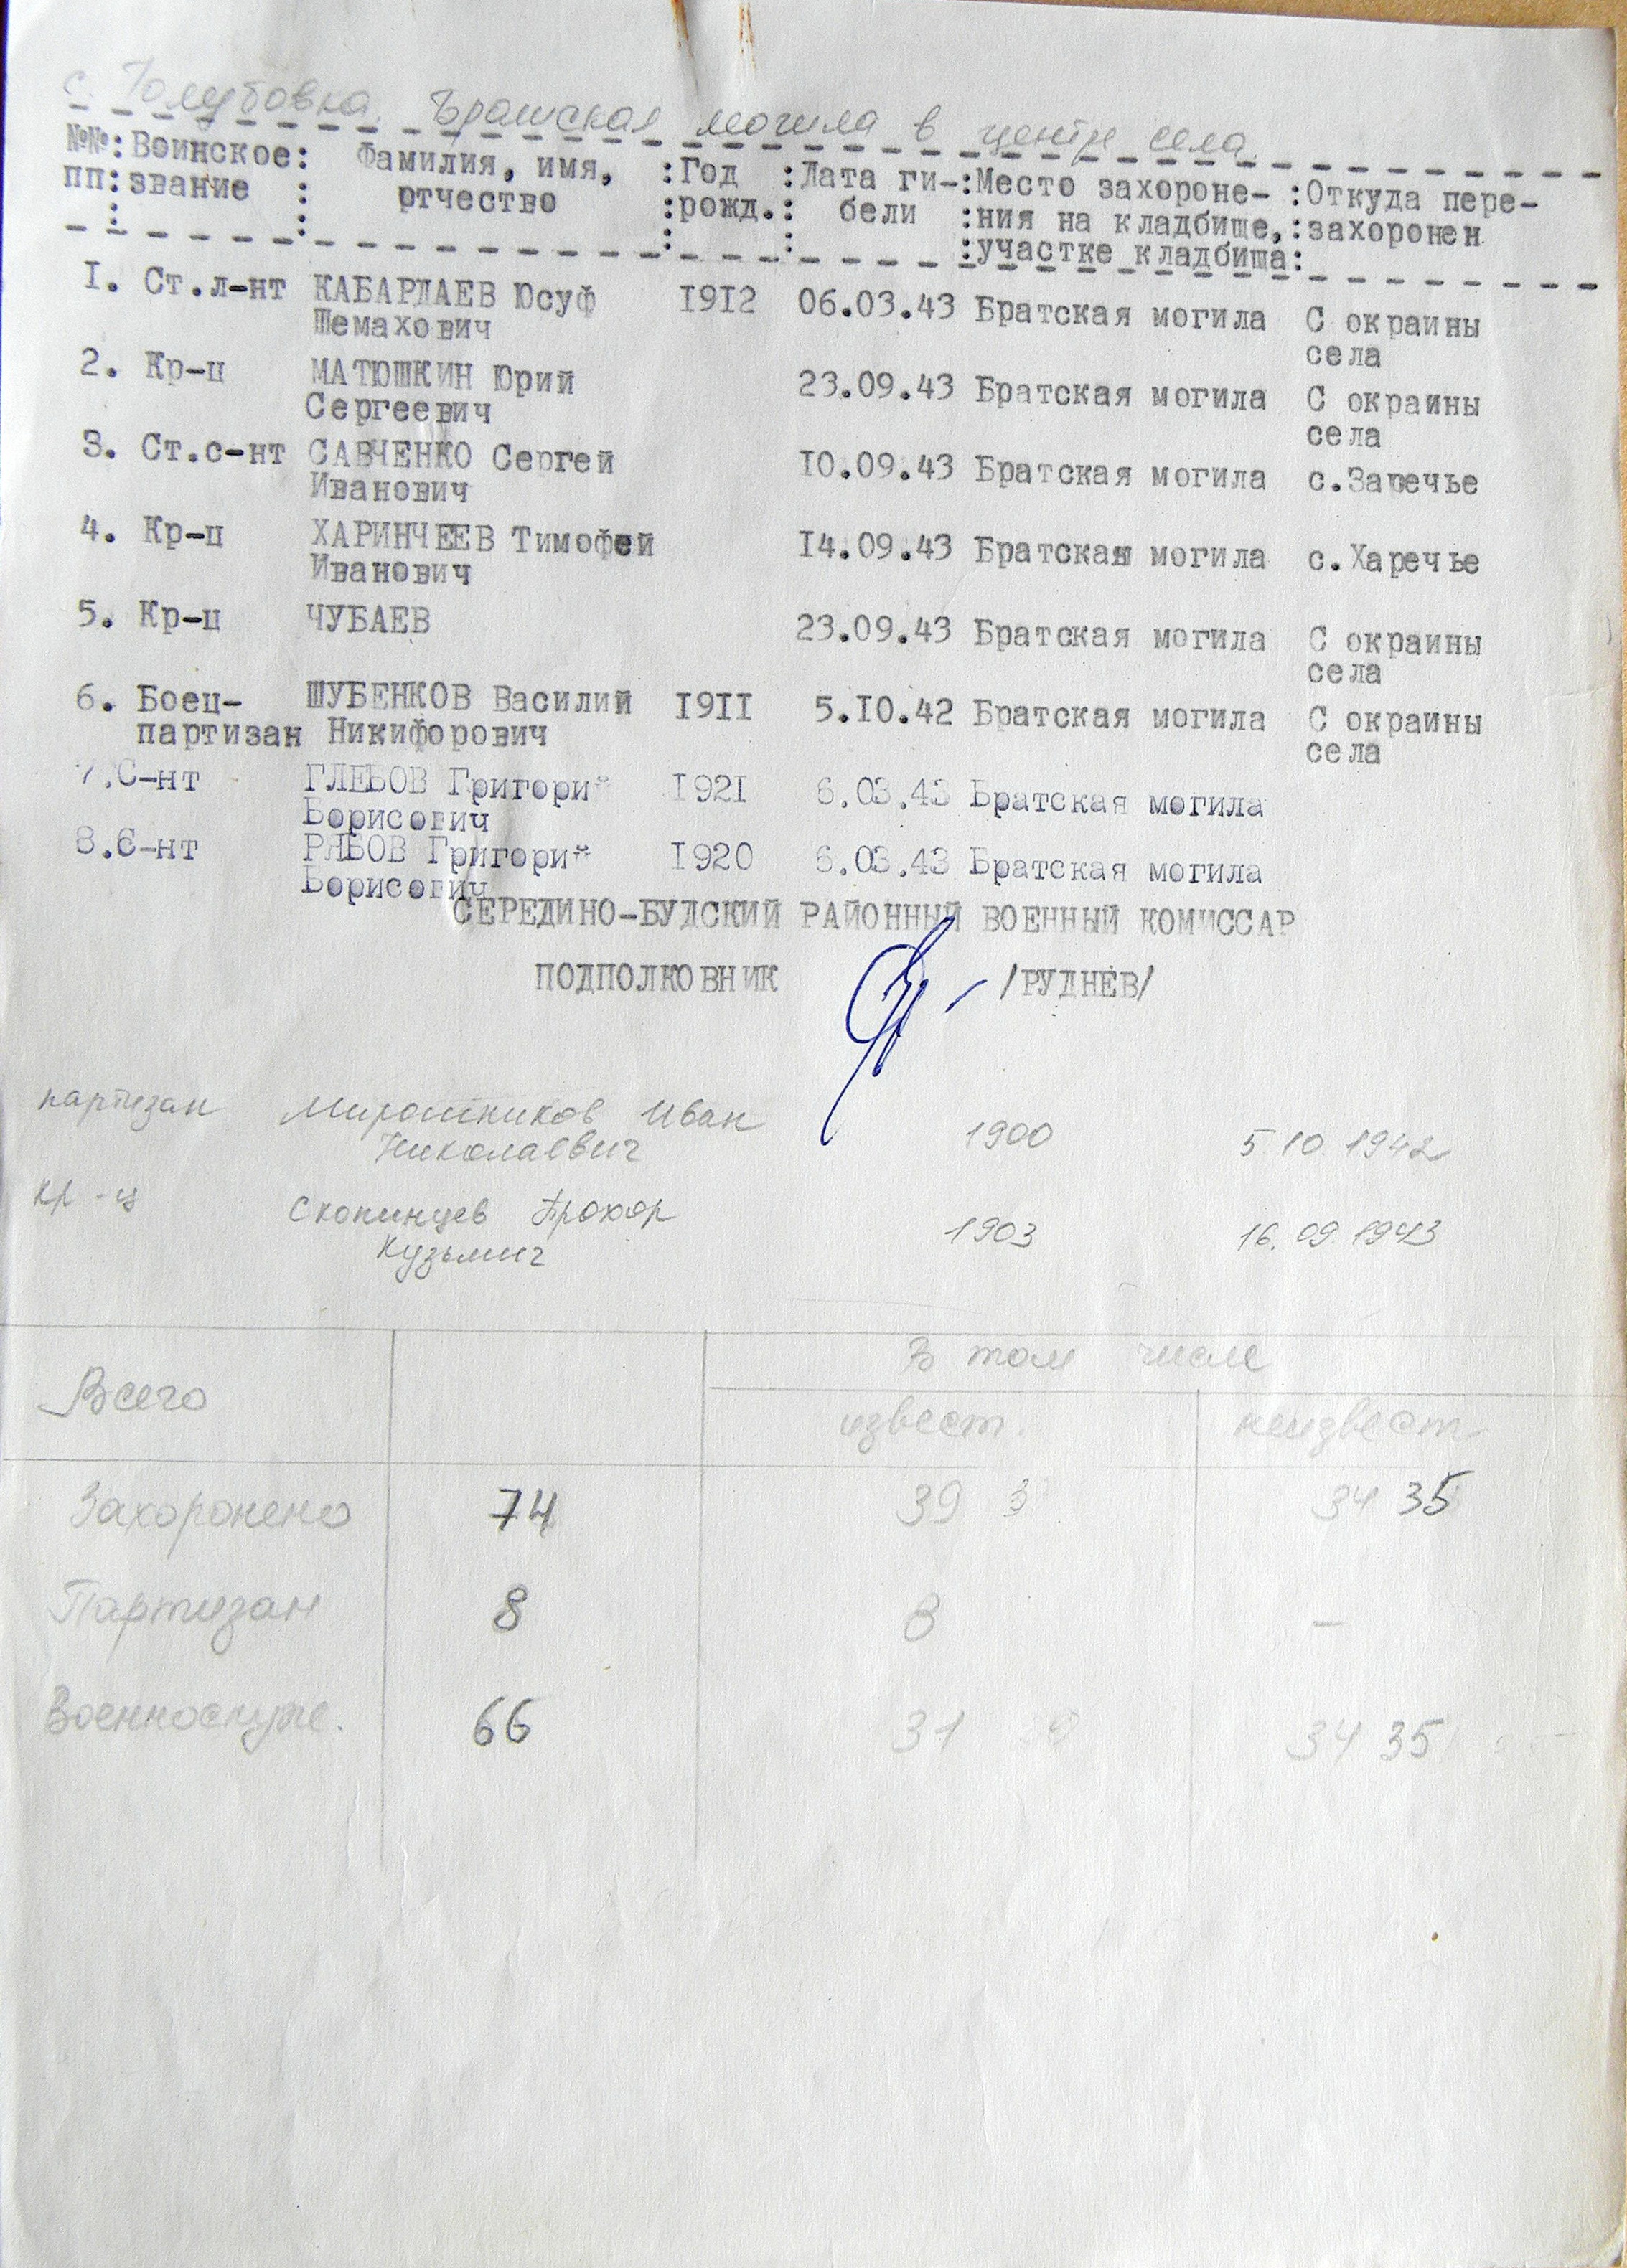 с. Голубовка. Братская могила в центр села.
№№: Воинское: Фамилия, имя, :Год :Дата ги-:Место захороне- :Откуда пере-
пп: звание : ртчество :рожд.: бели :ния на кладбище,:захоронен
: : : : :участке кладбища:
1. Ст.л-нт КАБАРДАЕВ Юсуф 1912 06.03.43 Братская могила С окраины
Шемахович села
2. Кр-ц МАТЮШКИН Юрий 23.09.43 Братская могила С окраины
Сергеевич села
3. Ст.с-нт САВЧЕНКО Сергей 10.09.43 Братская могила с.Заречье
Иванович
4. Кр-ц ХАРИНЧЕЕВ Тимофей 14.09.43 Братская могила с.Харечье
Иванович
5. Кр-ц ЧУБАЕВ 23.09.43 Братская могила С окраины
села
6. Боец- ШУБЕНКОВ Василий 1911 5.10.42 Братская могила С окраины
партизан Никифорович села
7.С-нт ГЛЕБОВ Григорий 1921 6.03.43 Братская могила
Борисович
8.С-нт РЯБОВ Григорий 1920 6.03.43 Братская могила
Борисович
СЕРЕДИНО-БУДСКИЙ РАЙОННЫЙ ВОЕННЫЙ КОМИССАР
ПОДПОЛКОВНИК /РУДНЕВ/
партизан Мирошников Иван 1900 5 10. 1942
Николаевич
кр-ц Скопинцев Прохор 1903 16. 09 1943
Кузьмич
Всего В том числе
извест. неизвест.
Захоронено 74 39 3 34 35
Партизан 8 8 –
Военнослуж. 66 31 34 35